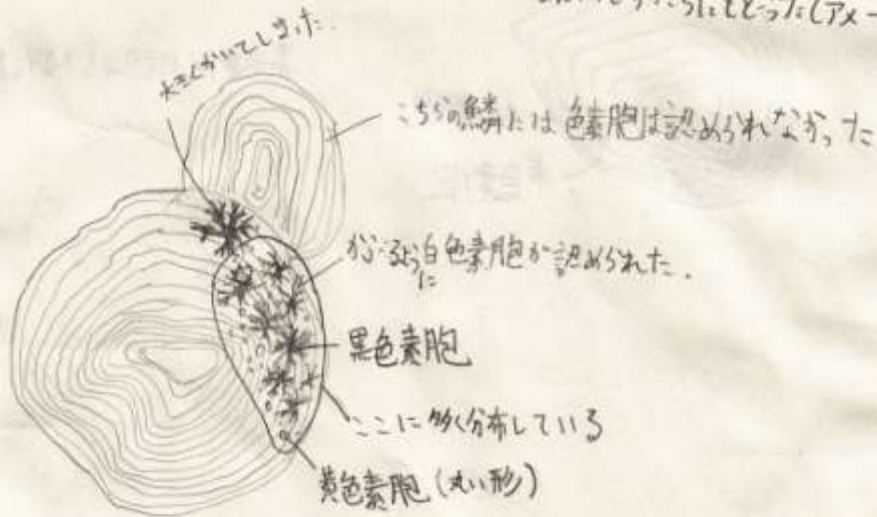 とった(アメー
大きくかいてしまった.
こちらの鱗には色素胞は認められなかった
かぶるように白色素胞が認められた.
黒色素胞
ここに多く分布している
黄色素胞(丸い形)